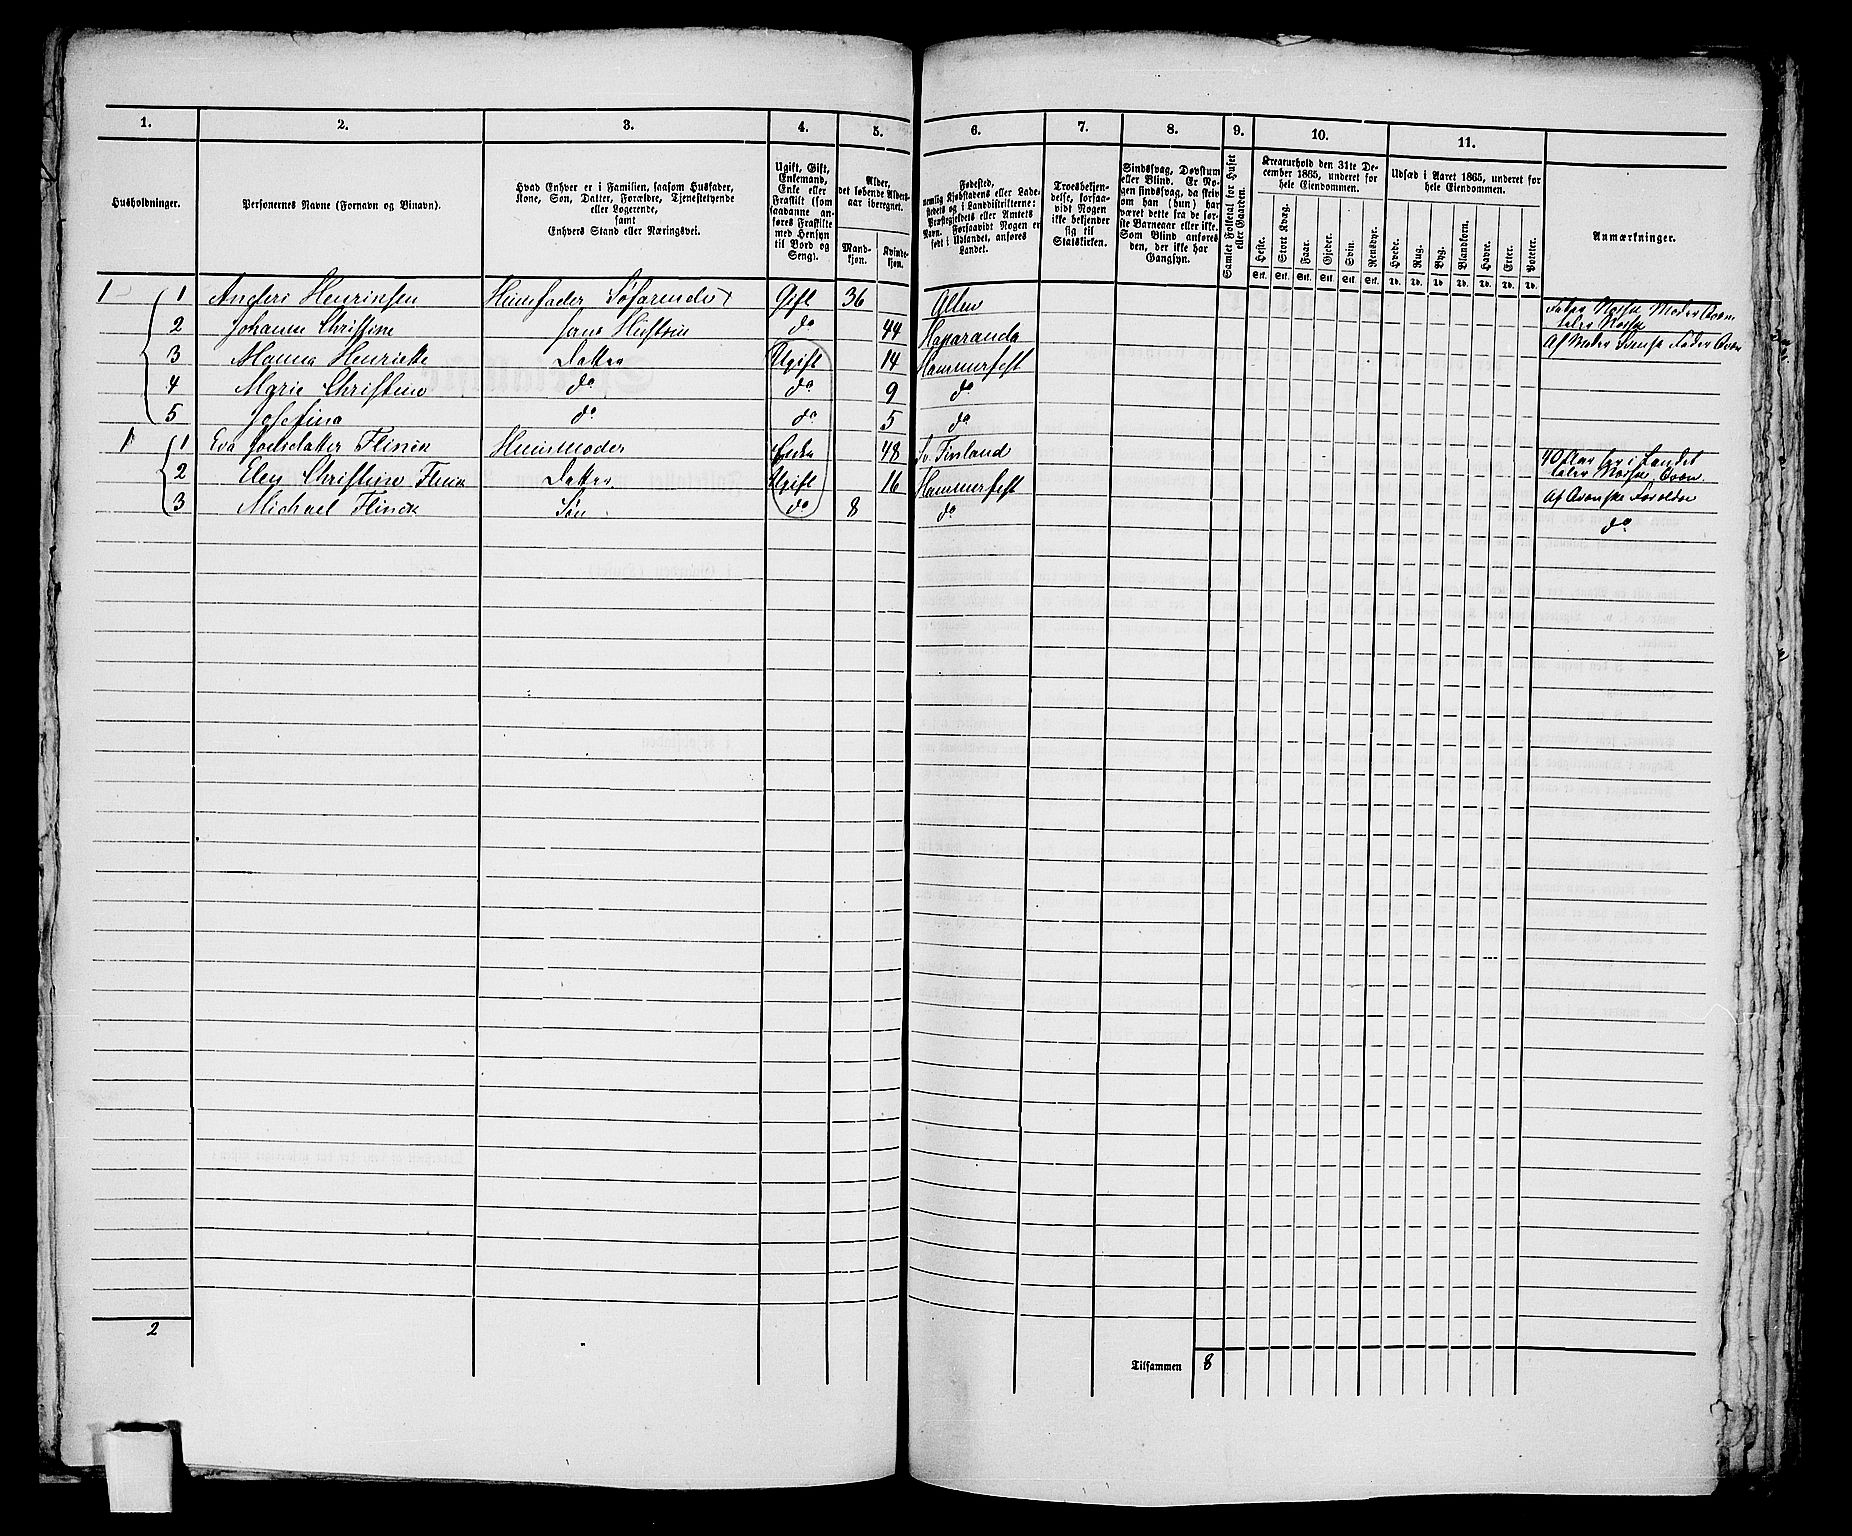 1. 2. 3. 4. 5. 6. 7. 8. 9. 10. 11.
Husholdninger.
Personernes Navne (Fornavn og Binavn).
Hvad Enhver er i Familien, saasom Husfader,
Kone, Søn, Datter, Forældre, Tjenestetyende
eller Logerende,
samt
Enhvers Stand eller Næringsvei.
Ugift, Gift,
Enkemand,
Enke eller
Fraskilt (som
saadanne an-
føres Fraskilte
med Hensyn
til Bord og
Seng).
Alder,
det løbende Alders-
aar iberegnet.
Mand-
kjøn.
Kvinde-
kjøn.
Fødested,
nemlig Kjøbstadens eller Lade-
stedets og i Landdistrikterne:
Præstegjeldets eller Amtets
Navn. Forsaavidt Nogen er
født i Udlandet, anføres
Landet.
Troesbekjen-
delse, forsaa-
vidt Nogen
ikke bekjender
sig til
Statskirken.
Sindssvag, Døvstum
eller Blind. Er No-
gen sindssvag, da skriv
om han (hun) har
været dette fra de før-
ste Barneaar eller ikke.
Som Blind anføres
den, der ikke har
Gangsyn.
Samlet Folketal for Huset
eller Gaarden.
Kreaturhold den 31te De-
cember 1865, underet for
hele Eiendommen.
Heste. Stort Kvæg. Faar. Gjeder. Svin. Rensdyr.
Stk. Stk. Stk. Stk. Stk. Stk.
Udsæd i Aaret 1865, underet for
hele Eiendommen.
Hvede. Rug. Byg. Blandkorn. Havre. Erter. Poteter.
Td. Td. Td. Td. Td. Td. Td.
Anmærkninger.
1 1 Anders Henriksen Huusfader Søfarende Gift 36 Alten
2 Johanne Christine hans Hustru do 44 Haparanda
3 Henriette Datter Ugift 14 Hammerfest
4 Marie Christine do do 9 do
5 Josefina do do 5 do
1 1 Eva Flinck Huusmoder Enke 48 Finland
2 Elen Christine Flinck Datter Ugift 16 Hammerfest
3 Michael Flinck Søn do 8 do
do
2
Tilsammen 8